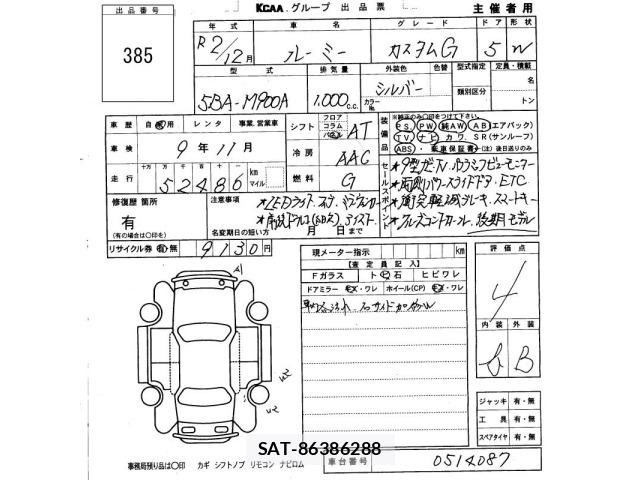 出品番号 KCAA. グループ 出品票 主催者用
385
年式 車名 グレード ドア 形状
R2/12月 ルーミー カスタムG 5 W
型式 排気量 外装色 色替 型式指定 定員・積載
5BA-M900A 1,000 c.c. シルバー カラーNo. 類別区分 名 トン
車歴 自家用 レンタ 事業、営業車 シフト フロア コラム AT
装備品 ※純正のみ○印をつけて下さい
PS PW 純AW AB(エアバック)
TV ナビ カワ SR(サンルーフ)
ABS 乗車保証書(注)後日送りのみ
車検 9年11月 冷房 AAC
走行 十万 万 千 百 十 52486 km マイル 燃料 G
セールスポイント
※9型ナビTV パノラミックビューモニター
※両側パワースライドドア ETC
※衝突軽減ブレーキ スマートキー
※クルーズコントロール 後期モデル
修復歴 箇所 注意事項
有
(有の場合は○印) 名変期日の短い方 月 日まで
リサイクル券 有 無 9130円
現メーター指示 km 評価点
【査定員記入】
Fガラス トビ石 ヒビワレ
ドアミラー キズ・ワレ ホイール(CP) キズ・ワレ
4
内装 外装
B
A1
W2
W2
ジャッキ 有・無
工具 有・無
スペアタイヤ 有・無
SAT-86386288
事務局預り品は○印 カギ シフトノブ リモコン ナビロム
車台番号 0514087